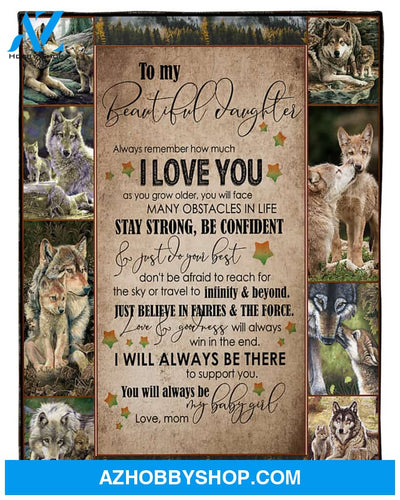 AZ
To my
Beautiful daughter
Always remember how much
I LOVE YOU
as you grow older, you will face
MANY OBSTACLES IN LIFE
STAY STRONG, BE CONFIDENT
& just do your best
don't be afraid to reach for
the sky or travel to infinity & beyond.
JUST BELIEVE IN FAIRIES & THE FORCE.
Love & goodness will always
win in the end.
I WILL ALWAYS BE THERE
to support you.
You will always be
my baby girl
Love, mom
AZHOBBYSHOP.COM